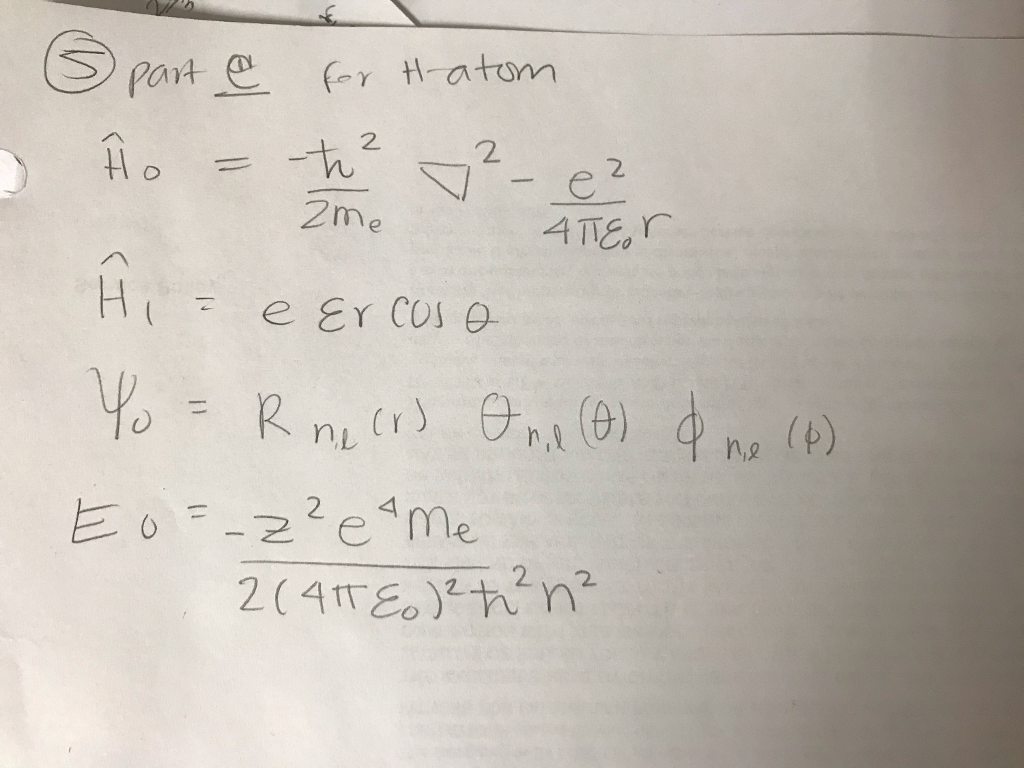 ⑤ part e for H-atom
Ĥ₀ = -ħ²/2mₑ ∇² - e²/4πε₀r
Ĥ₁ = e Ɛr cos θ
Ψ₀ = R n,l (r) Θ n,l (θ) ϕ n,l (ϕ)
E₀ = -z²e⁴mₑ/2(4πε₀)²ħ²n²